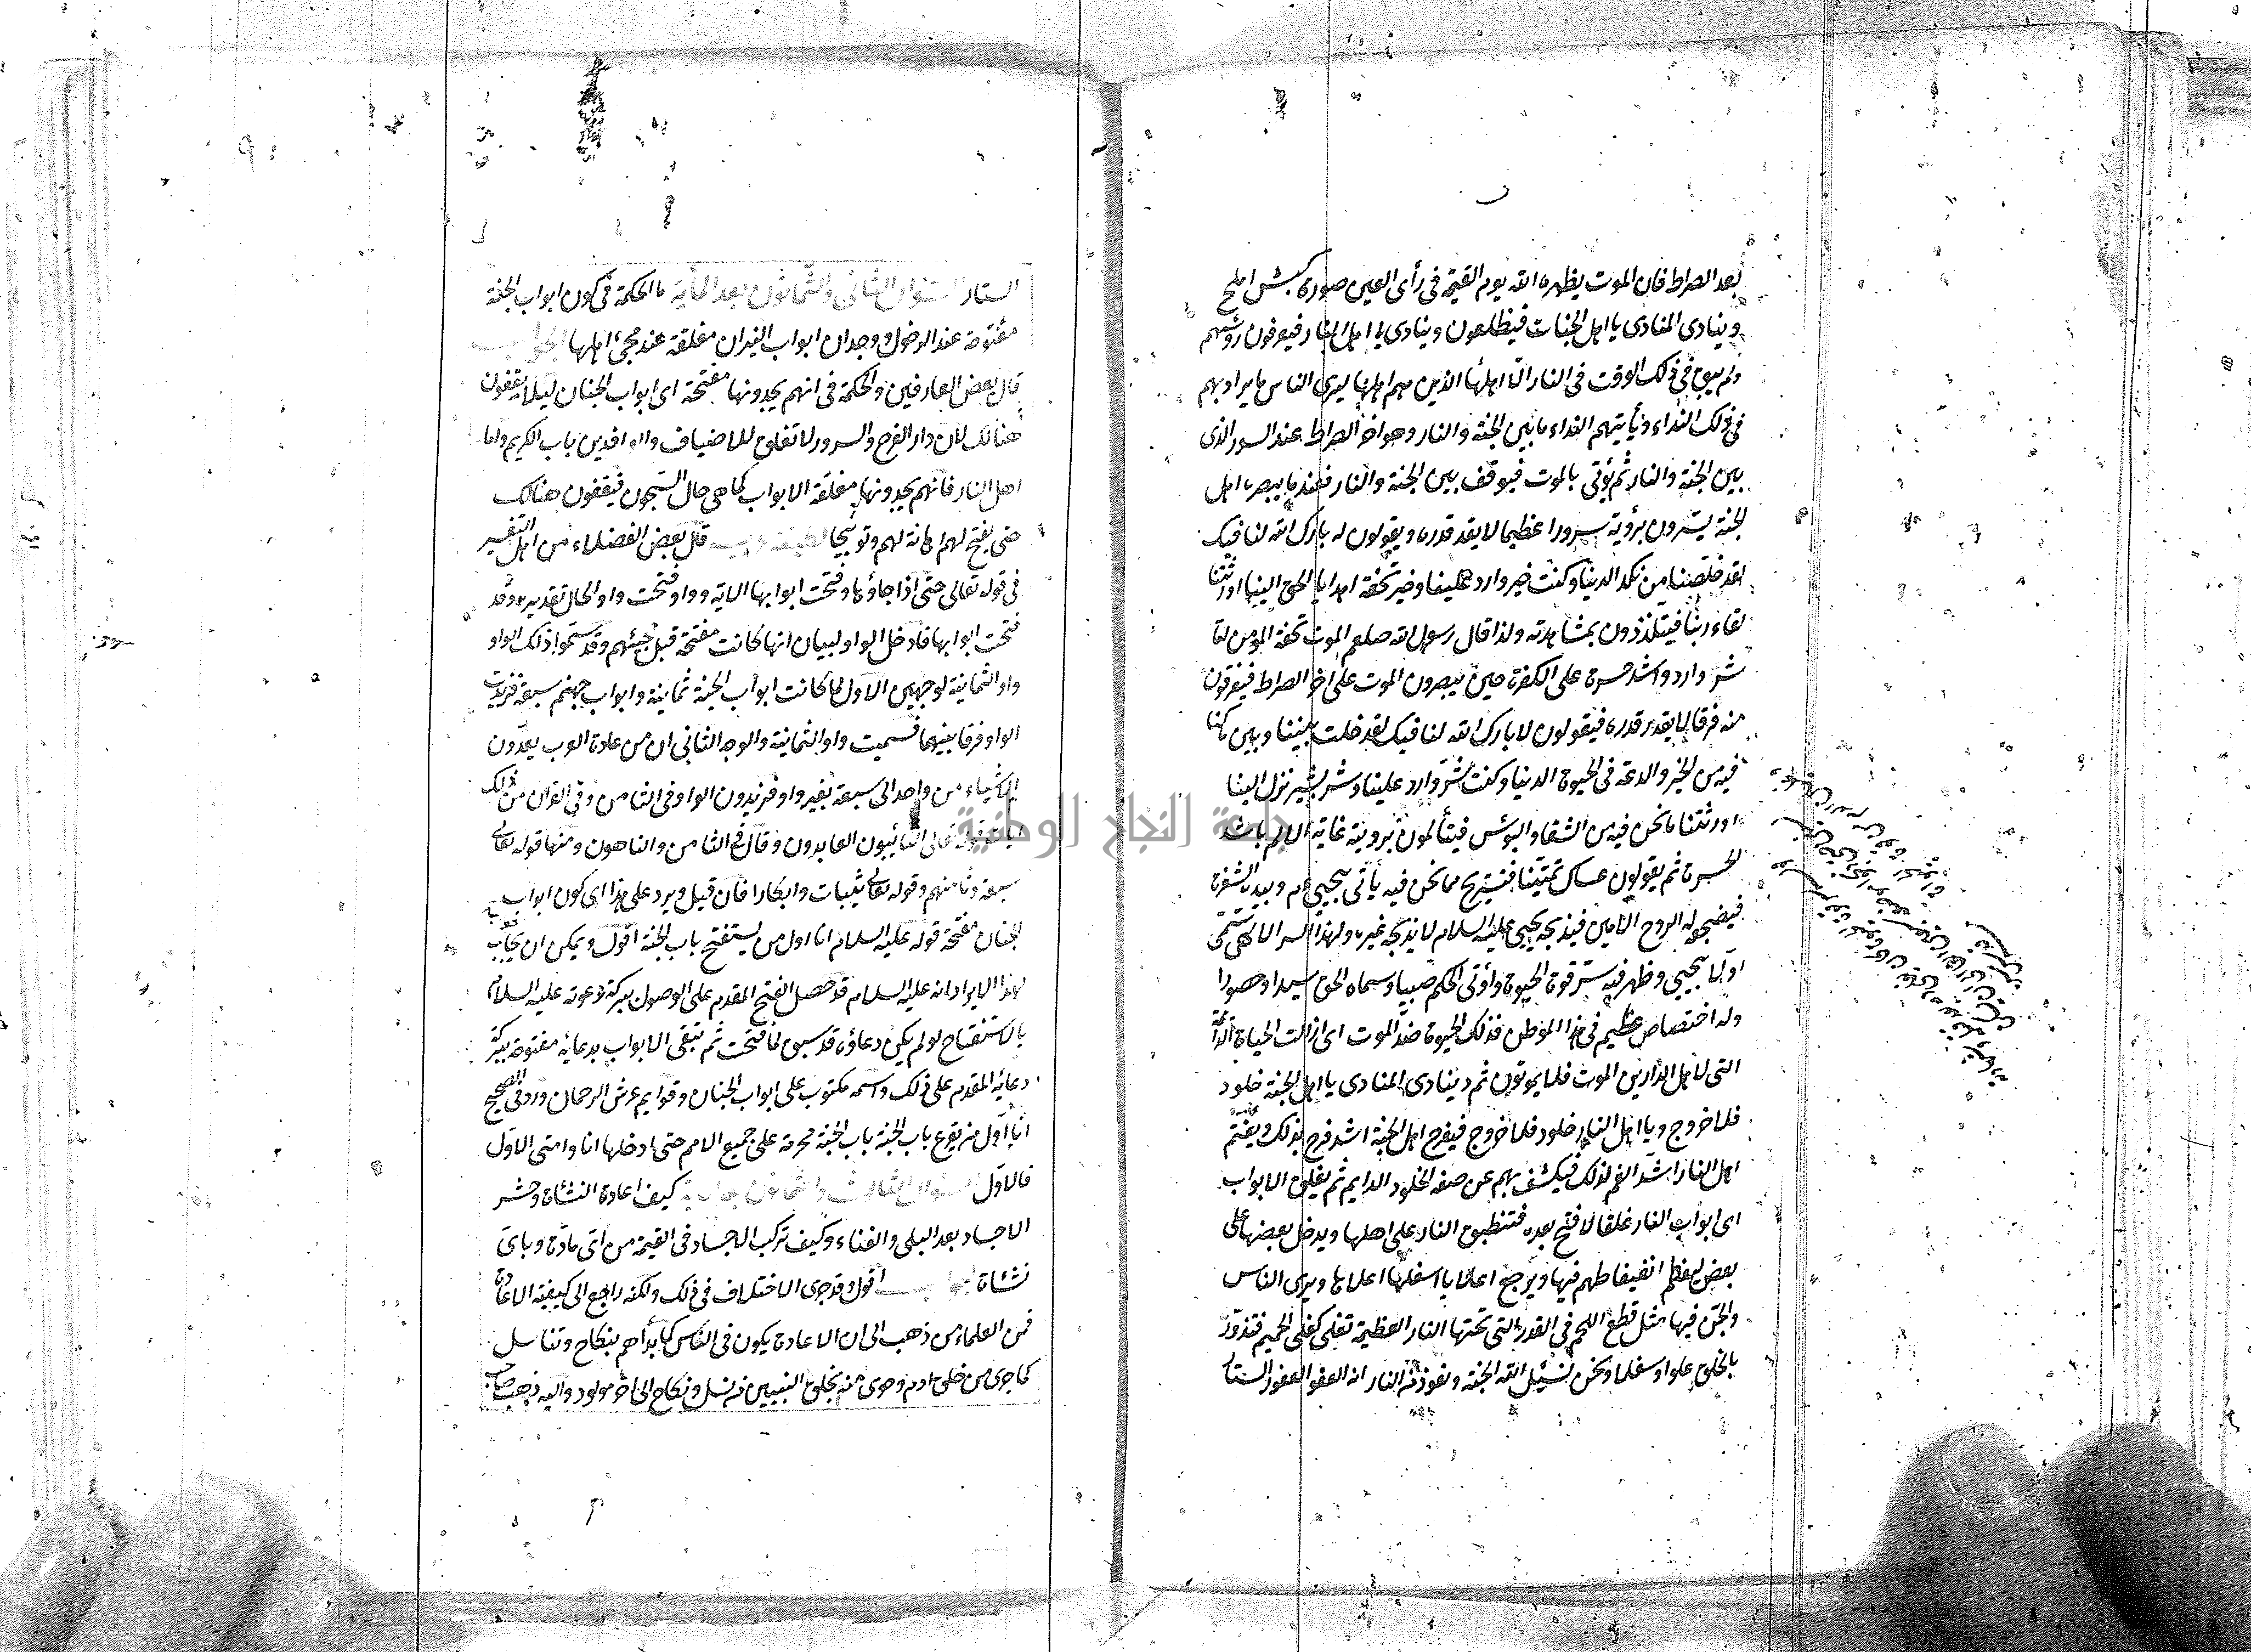 بعد الصراط فان الموت يظهره الله يوم القيمة فى رأى العين صورة كبش املح
وينادى المنادى يا اهل الجنات فيطلعون وينادى يا اهل النار فيعرفون رؤسهم
ولم يبق فى ذلك الوقت فى النار الا اهلها الذين هم اهلها ليرى الناس ما يراد بهم
فى ذلك النداء ويأتيهم النداء ما بين الجنة والنار وهو اخر الصراط عند السور الذى
بين الجنة والنار ثم يؤتى بالموت فيوقف بين الجنة والنار فعند ما يبصره اهل
الجنة يسرون برؤية سرورا عظيما لا يقدر قدره ويقولون له بارك الله لنا فيك
لقد خلصتنا من نكد الدنيا وكنت خير وارد علينا وخير تحفة اهدايا الحق الينا اورثتنا
لقاء ربنا فيتلذذون بمشاهدته ولذا قال رسول الله صلعم الموت تحفة المؤمن
شر وارد واشد حسرة على الكفرة حين يبصرون الموت على اخر الصراط فيفرقون
منه فرقا لا يقدر قدره فيقولون لا بارك الله لنا فيك لقد خلت بيننا وبين كنا
فيه من الخير والدعة فى الحيوة الدنيا وكنت شر وارد علينا وشر بشير نزل الينا
اورثتنا ما نحن فيه من الشقا والبؤس فيتألمون برؤية غاية الالم باشد
الحسرة ثم يقولون عساك تميتنا فنستريح مما نحن فيه يأتى بيحيى عم وبيده الشفرة
فيضجع له الروح الامين فيذبحه يحيى عليه السلام لا يذبحه غيره ولهذا السر الالهى سمى
اولا بيحيى وظهر فيه سر قوة الحيوة واوتى الحكم صبيا وسماه الحق سيدا وحصورا
وله اختصاص عظيم فى هذا الموطن فذلك الحيوة ضد الموت اى ازالت الحياة الدائمة
التى لاهل الدارين الموت فلا يموتون ثم ينادى المنادى يا اهل الجنة خلود
فلا خروج ويا اهل النار خلود فلا خروج فيفرح اهل الجنة اشد فرح بذلك ويغتم
اهل النار اشد الغم لذلك فيكشف بهم عن صفة الخلود الدايم ثم يغلق الابواب
اى ابواب النار غلقا لا فتح بعده فتنطبق النار على اهلها ويدخل بعضها على
بعض ليعظم انضغاطهم فيها ويرجع اعلاها اسفلها اعلاها ويرى الناس
والجن فيها مثل قطع اللحم فى القدر التى تحتها النار العظيمة تغلى كغلى الحميم فتدور
بالخلق علوا وسفلا ونحن نسئل الله الجنة ونعوذ من النار انه العفو الغفور الستار
الستار السؤال الثانى والثمانون بعد المأية ما الحكمة فى كون ابواب الجنة
مفتوحة عند الدخول ووجدان ابواب النيران مغلقة عند مجئ اهلها الجواب
قال بعض العارفين والحكمة فى انهم يجدونها مفتحة اى ابواب الجنان ليلا يقفون
هنالك لان دار الفرح والسرور لا تغلق للاضياف والوافدين باب الكريم واما
اهل النار فانهم يجدونها مغلقة الابواب كما هى حال السجون فيقفون هنالك
حتى يفتح لهم اهانة لهم وتوبيخا لطيفة قال بعض الفضلاء من اهل التفسير
فى قوله تعالى حتى اذا جاؤها وفتحت ابوابها الاية وواو فتحت واو الحال تقديره وقد
فتحت ابوابها فادخل الواو لبيان انها كانت مفتحة قبل مجيئهم وقد سموا ذلك الواو
واو الثمانية لوجهين الاول لما كانت ابواب الجنة ثمانية وابواب جهنم سبعة فزيدت
الواو فرقا بينهما فسميت واو الثمانية والوجه الثانى ان من عادة العرب يعدون
الاشياء من واحد الى سبعة بغير واو فيزيدون الواو فى الثامن وفى القران من ذلك
تعالى التائبون العابدون وقال فى الثامن والناهون ومنها قوله تعالى
سبعة وثامنهم وقوله تعالى ثيبات وابكارا فان قيل ويرد على هذا اى كون ابواب
الجنان مفتحة قوله عليه السلام انا اول من يستفتح باب الجنة اقول ويمكن ان يجاب
لهذا الايراد انه عليه السلام قد حصل الفتح المقدم على الوصول ببركة دعوته عليه السلام
بالاستفتاح لو لم يكن دعاؤه قد سبق لما فتحت ثم تبقى الابواب بدعائه مفتوحة ببركة
دعائه المقدم على ذلك واسمه مكتوب على ابواب الجنان وقوايم عرش الرحمان ورد فى الصحيح
انا اول من يقرع باب الجنة باب الجنة محرمة على جميع الامم حتى ادخلها انا وامتى الاول
فالاول السؤال الثالث والثمانون كيف اعادة النشأة وحشر
الاجساد بعد البلى والفناء وكيف تركب الاجساد فى القيمة من اى مادة وباى
نشأة اقول وقد جرى الاختلاف فى ذلك ولكنه راجع الى كيفية الاعادة
فمن العلماء من ذهب الى ان الاعادة يكون فى الناس كما بدأهم بنكاح وتناسل
كما جرى من خلق ادم وحوى منه بخلق النبيين من نسل ونكاح الى اخر مولود واليه ذهب
جامعة النجاح الوطنية